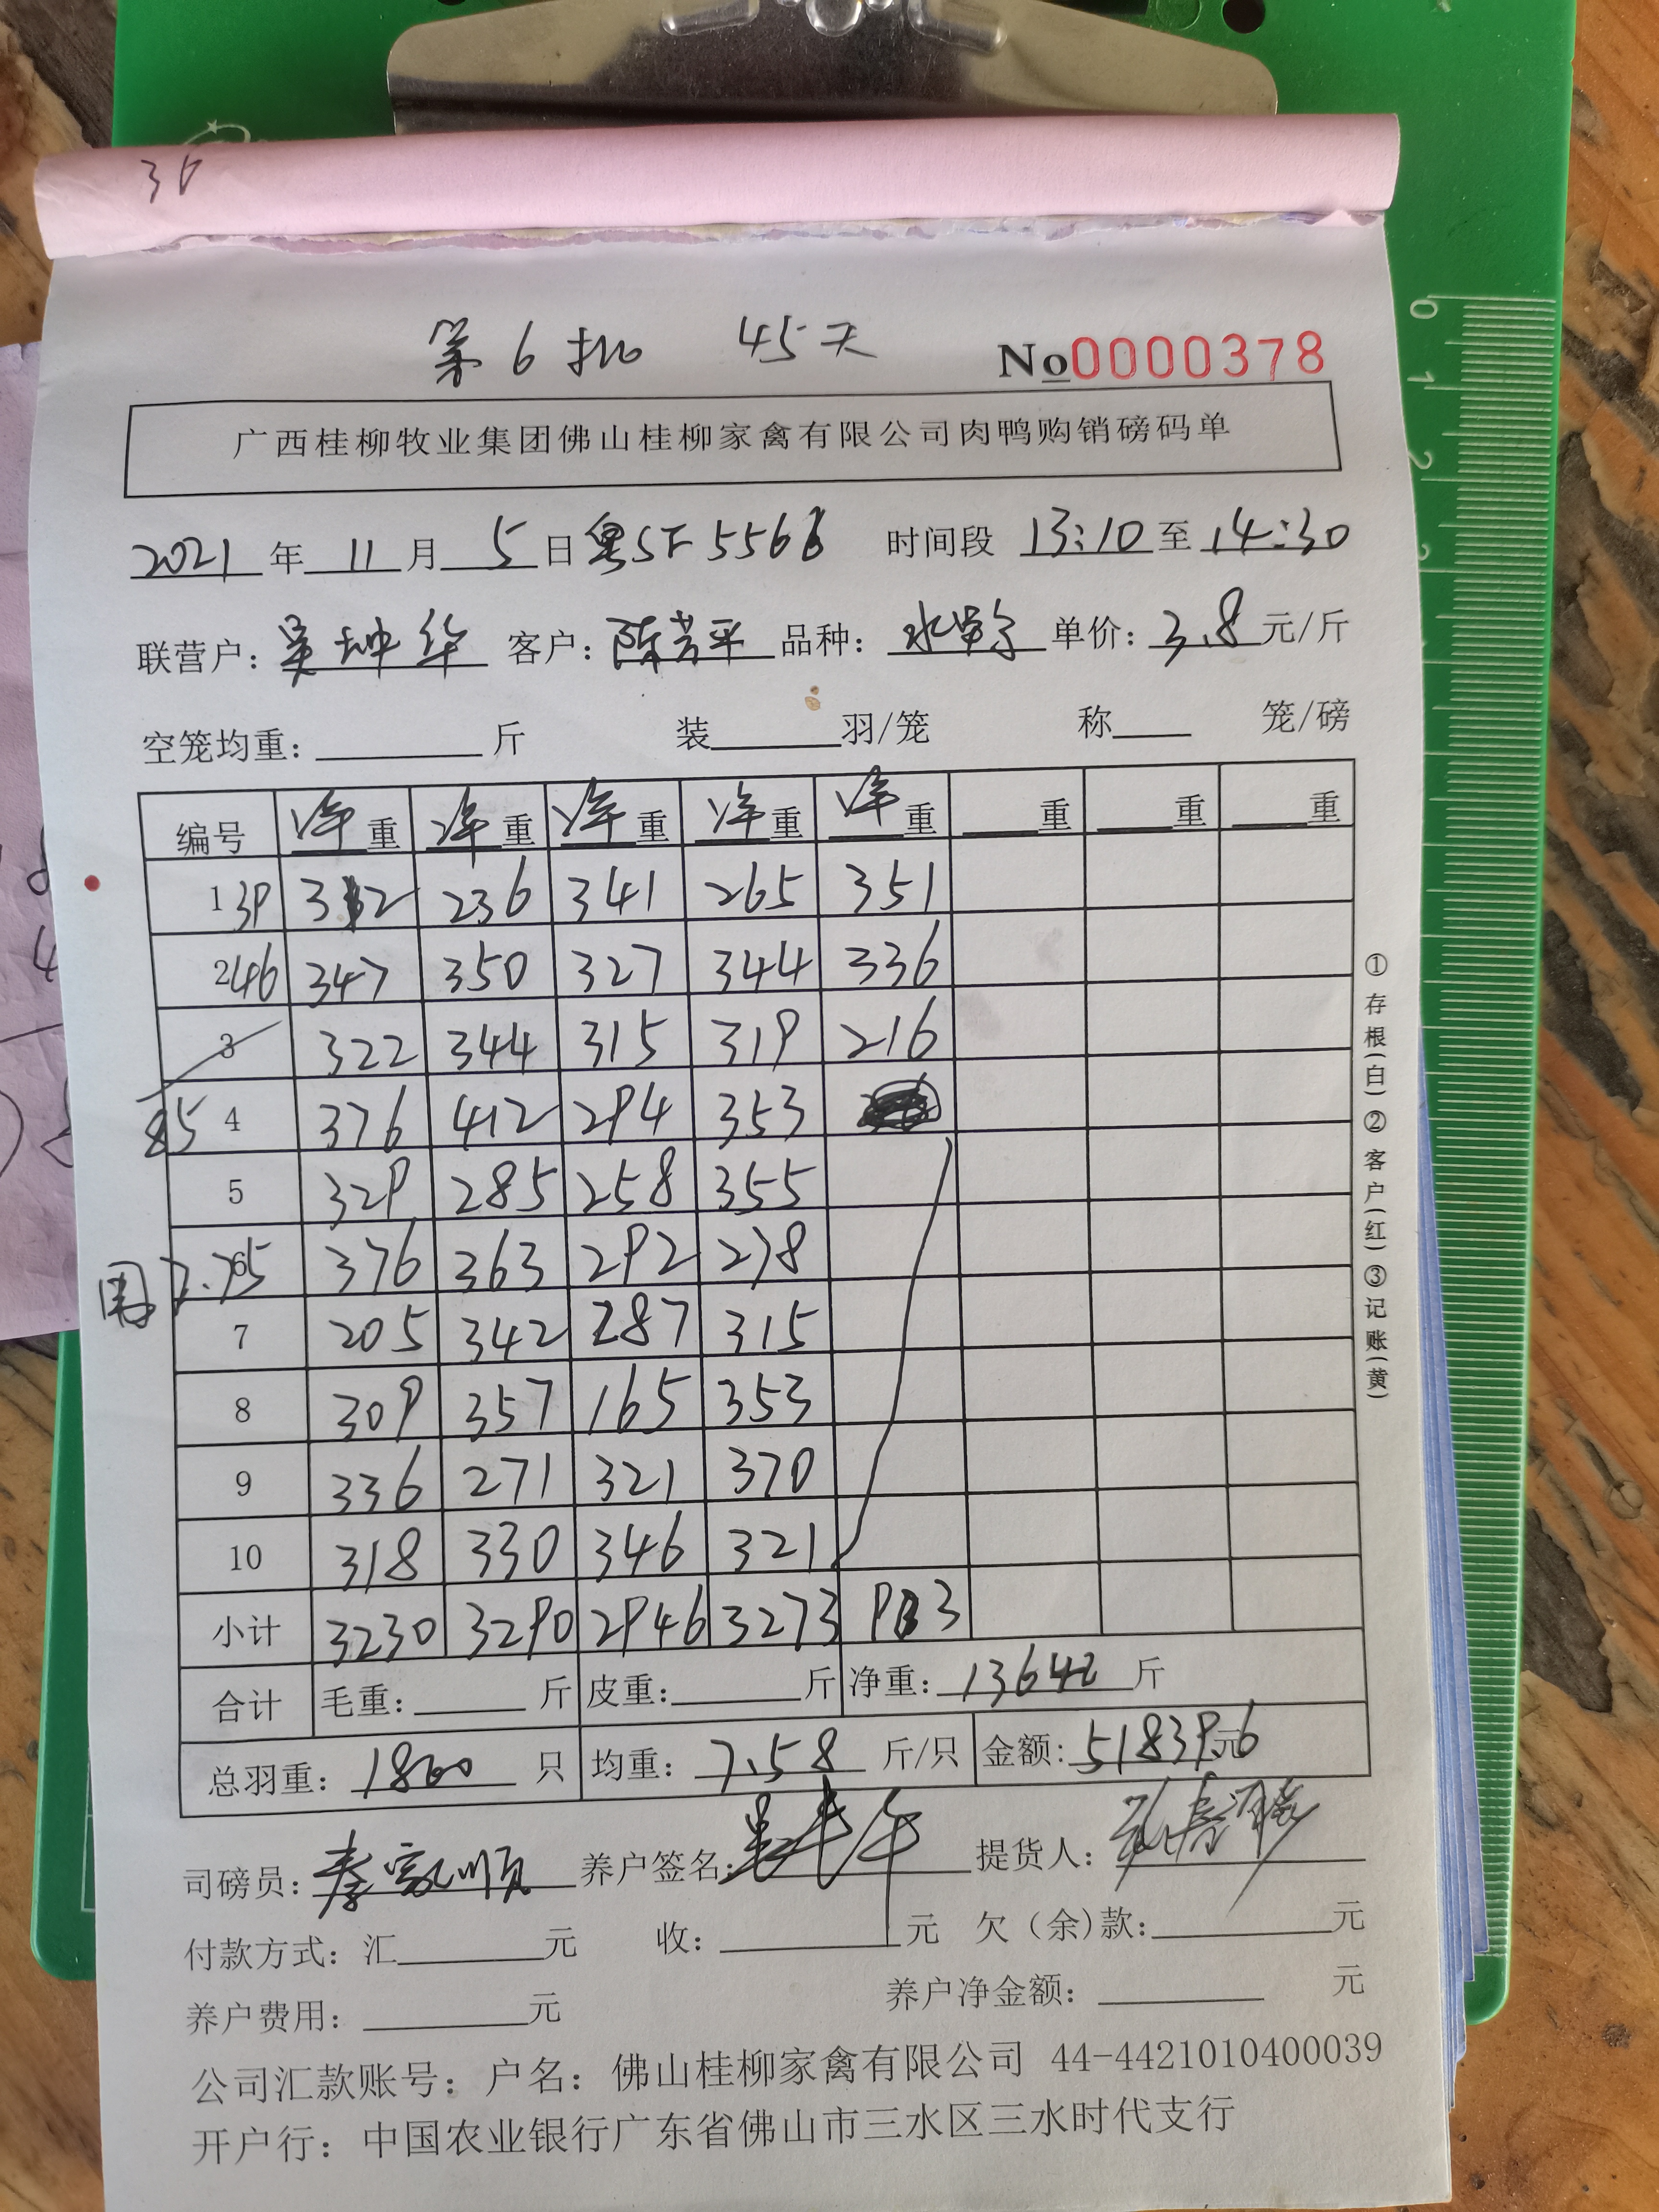 36
第6批 45天
No0000378
广西桂柳牧业集团佛山桂柳家禽有限公司肉鸭购销磅码单
2021年11月5日 粤 5566 时间段 13:10至14:30
联营户:吴坤华 客户:陈芳平 品种: 单价:3.8元/斤
空笼均重:斤 装羽/笼 称 笼/磅
编号 净重 净重 净重 净重 净重 重 重 重
1 39 312 236 341 265 351
2 46 347 350 327 344 336
3 322 344 315 319 216
85 4 376 412 294 353
5 329 285 258 355
7.75 6 376 363 292 278
7 205 342 287 315
8 309 357 165 353
9 336 271 321 370
10 318 330 346 321
小计 3230 3290 2946 3273 903
合计 毛重:斤 皮重:斤 净重:13642斤
总羽重:1800只 均重:7.58斤/只 金额:51839.6元
司磅员:秦家顺 养户签名: 提货人:
付款方式:汇元 收:元 欠(余)款:元
养户费用:元 养户净金额:元
公司汇款账号:户名:佛山桂柳家禽有限公司 44-4421010400039
开户行:中国农业银行广东省佛山市三水区三水时代支行
①存根(白)②客户(红)③记账(黄)
0
1
2